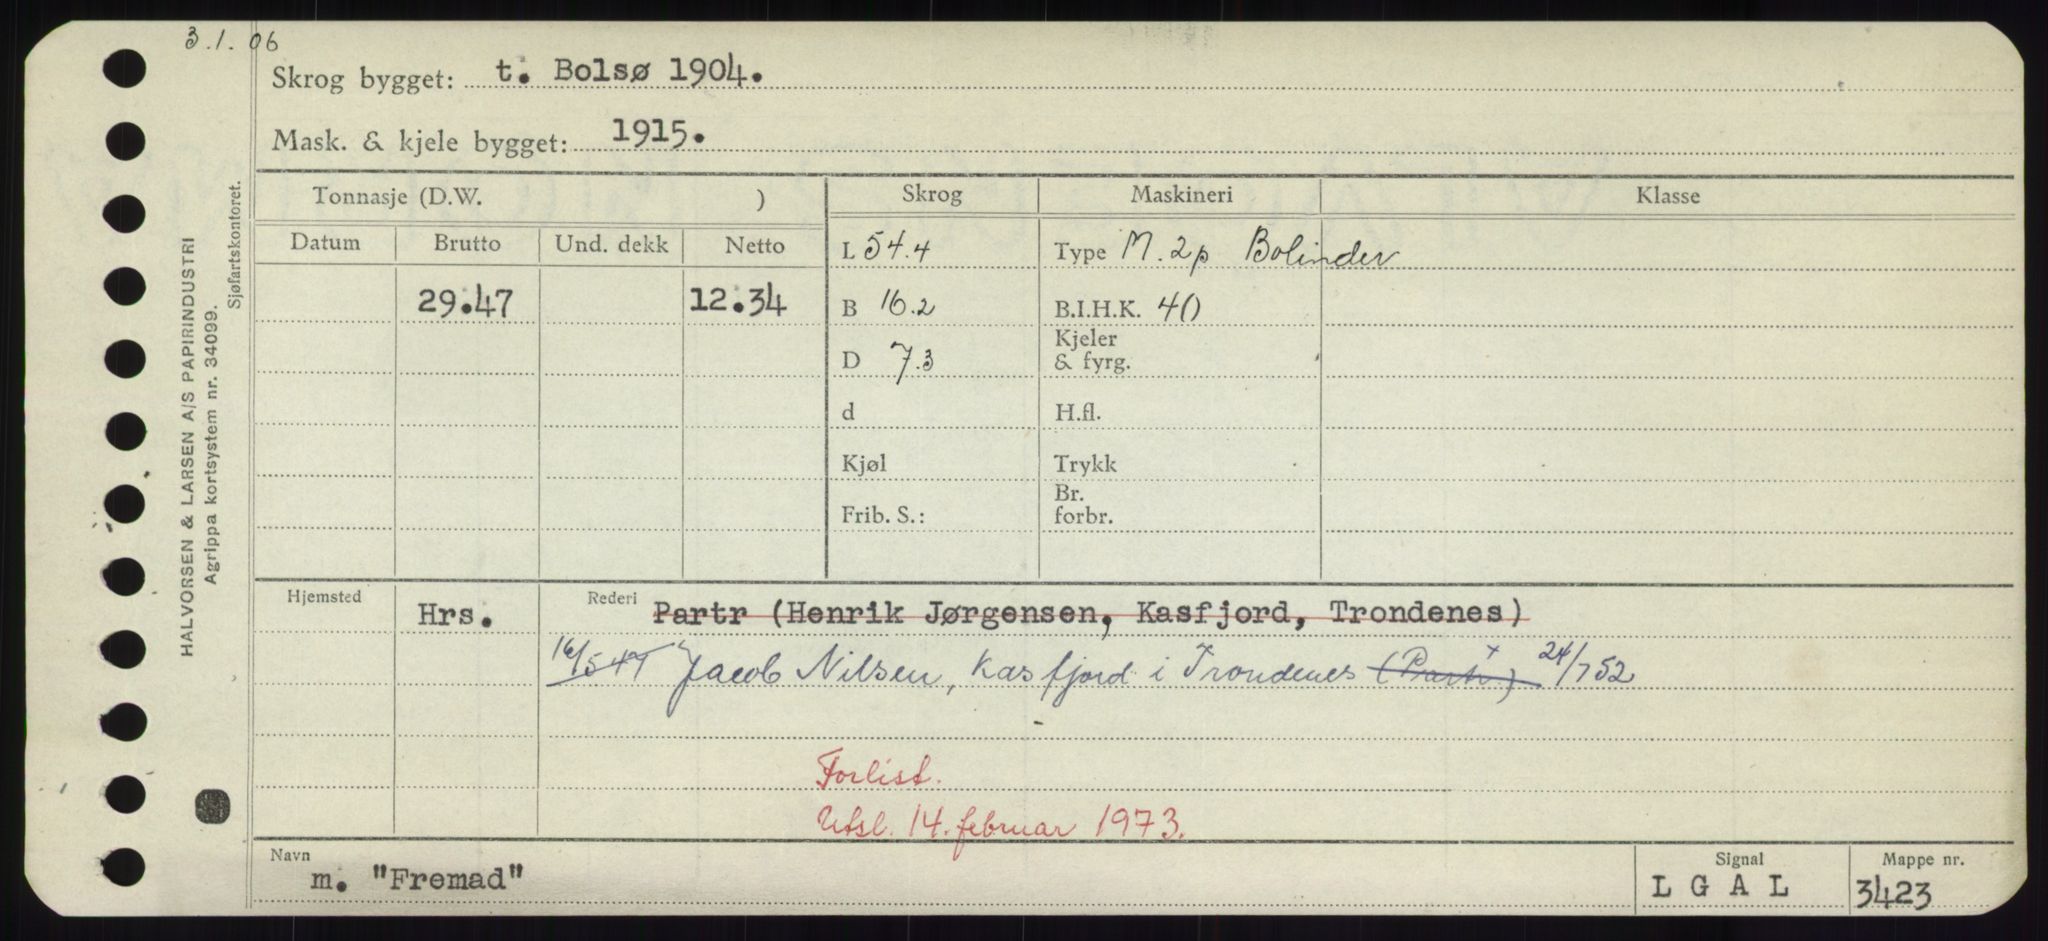 3.1.06
Skrog bygget: t. Bolsø 1904.
Mask. & kjele bygget: 1915.
Tonnasje (D.W. ) Skrog Maskineri Klasse
Datum Brutto Und. dekk Netto L 54.4 Type M. 2p Bolinder
29.47 12.34 B 16.2 B.I.H.K. 40
D 7.3 Kjeler & fyrg.
d H.fl.
Kjøl Trykk
Frib. S.: Br. forbr.
Hjemsted Hrs. Rederi Partr (Henrik Jørgensen, Kasfjord, Trondenes)
16/5 47 Jacob Nilsen, Kasfjord i Trondenes (Partr) x 24/7 52
Forlist.
Utsl. 14. februar 1973.
Navn m. "Fremad" Signal L G A L Mappe nr. 3423
HALVORSEN & LARSEN A/S PAPIRINDUSTRI
Agrippa kortsystem nr. 34099.
Sjøfartskontoret.